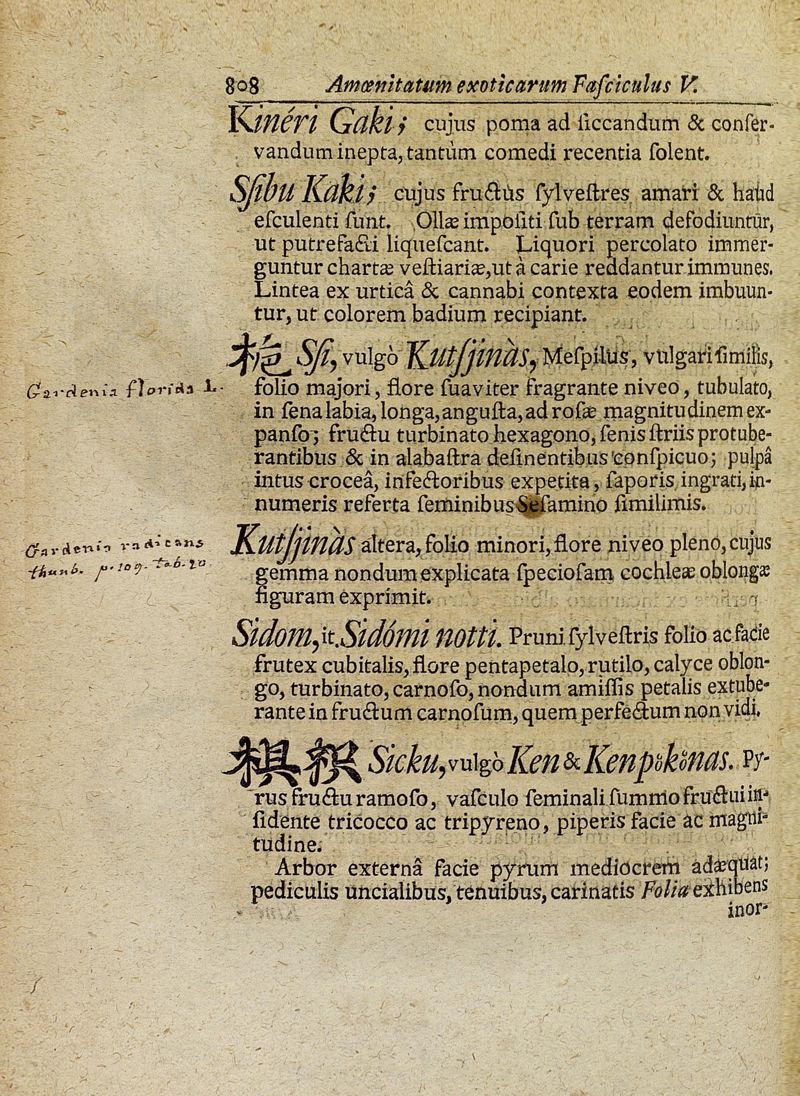 808 Amœnitatum exoticarum Faſciculus V.
Kinéri Gaki; cujus poma ad ſiccandum & conſer-
vandum inepta, tantùm comedi recentia ſolent.
Sſibu Kaki; cujus fructus ſylveſtres amari & haud
eſculenti ſunt. Ollæ impoſiti ſub terram defodiuntur,
ut putrefacti liqueſcant. Liquori percolato immer-
guntur chartæ veſtiariæ, ut à carie reddantur immunes.
Lintea ex urticâ & cannabi contexta eodem imbuun-
tur, ut colorem badium recipiant.
梔 Sſi, vulgò Kutſjinàs, Meſpilus, vulgari ſimilis,
Gardenia florida L.
folio majori, flore ſuaviter fragrante niveo, tubulato,
in ſena labia, longa, anguſta, ad roſæ magnitudinem ex-
panſo; fructu turbinato hexagono, ſenis ſtriis protube-
rantibus & in alabaſtra deſinentibus conſpicuo; pulpâ
intus croceâ, infectoribus expetita, ſaporis ingrati, in-
numeris referta ſeminibus Seſamino ſimilimis.
Kutſjinàs altera, folio minori, flore niveo pleno, cujus
Gardenia radicans
thunb. p. 109. tab. 20
gemma nondum explicata ſpecioſam cochleæ oblongæ
figuram exprimit.
Sidom, it. Sidómi notti. Pruni ſylveſtris folio ac facie
frutex cubitalis, flore pentapetalo, rutilo, calyce oblon-
go, turbinato, carnoſo, nondum amiſſis petalis extube-
rante in fructum carnoſum, quem perfectum non vidi.
棋枳 Sicku, vulgò Ken & Kenpokonas. Py-
rus fructu ramoſo, vaſculo ſeminali ſummo fructui in-
ſidente tricocco ac tripyreno, piperis facie ac magni-
tudine.
Arbor externâ facie pyrum mediocrem adæquat;
pediculis uncialibus, tenuibus, carinatis Folia exhibens
inor-